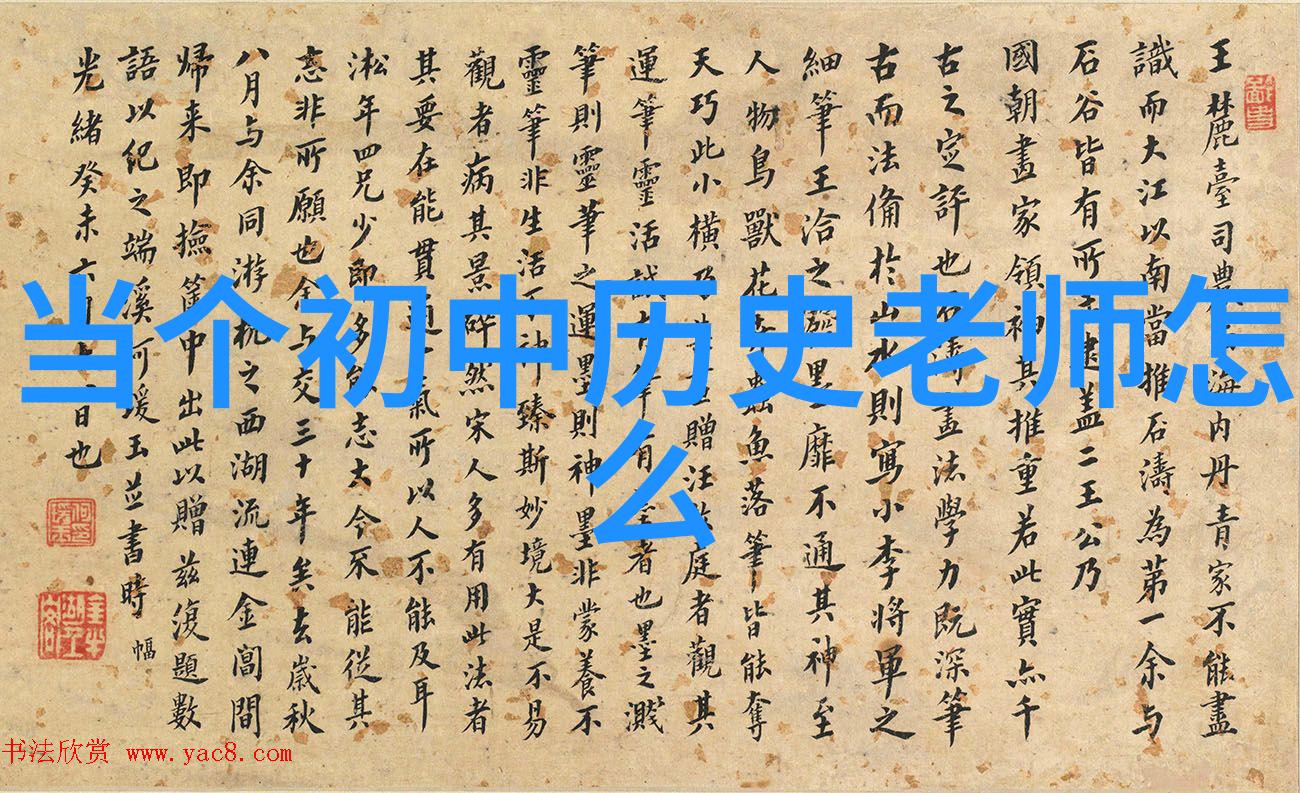 王麓臺司農海内丹青家不能盡
識而大江以南當推石濤為第一余与
石谷皆有所逮蓋二王公乃
國朝畫家領袖其推重若此實亦千
古之定評也畫法學力既深筆
古而法備於山水則寫小李將軍之
細筆王洽之潑墨靡不通其神至
人物鳥獸花卉蟲魚落筆皆能奪
天巧此小橫乃贈汪庭者觀其
運筆靈活者也墨之濺
筆則靈筆之運墨則神墨非蒙養不
靈筆非生活不神臻斯妙境大是不易
觀者病其景碎然宋人多有用此法者
其要在能貫通氣所以人不能及耳
淞年四兄少即多能志士今不能從其
志非所願也余与交三十年矣去歲秋
八月与余同游杭之西湖流連金閶間
歸来即撿篋中出此以贈茲復題數
語以紀之端溪何瑗玉並書時
幅
光緒癸未六月日也
当个初中历史老师怎
么
书法欣赏 www.yac8.com